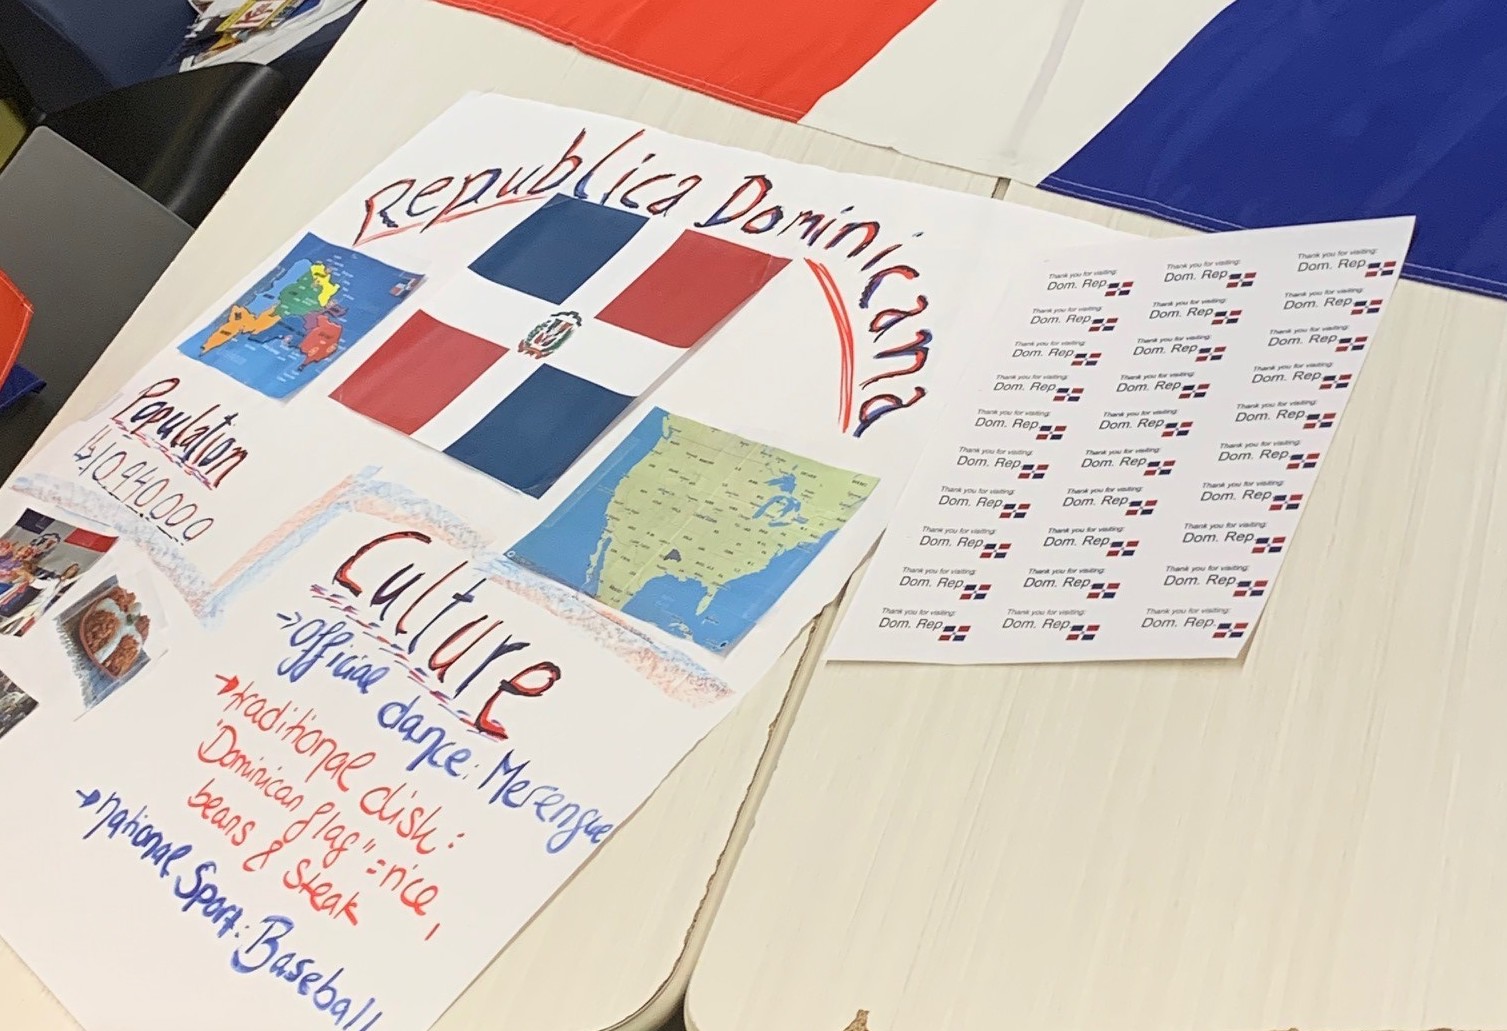 Republica Dominicana
Population
↳10.940.000
Culture
→official dance: Merengue
→traditional dish:
"Dominican flag" = rice,
beans & steak
→national Sport: Baseball
Thank you for visiting: Thank you for visiting: Thank you for visiting:
Dom. Rep Dom. Rep Dom. Rep
Thank you for visiting: Thank you for visiting: Thank you for visiting:
Dom. Rep Dom. Rep Dom. Rep
Thank you for visiting: Thank you for visiting: Thank you for visiting:
Dom. Rep Dom. Rep Dom. Rep
Thank you for visiting: Thank you for visiting: Thank you for visiting:
Dom. Rep Dom. Rep Dom. Rep
Thank you for visiting: Thank you for visiting: Thank you for visiting:
Dom. Rep Dom. Rep Dom. Rep
Thank you for visiting: Thank you for visiting: Thank you for visiting:
Dom. Rep Dom. Rep Dom. Rep
Thank you for visiting: Thank you for visiting: Thank you for visiting:
Dom. Rep Dom. Rep Dom. Rep
Thank you for visiting: Thank you for visiting: Thank you for visiting:
Dom. Rep Dom. Rep Dom. Rep
Thank you for visiting: Thank you for visiting: Thank you for visiting:
Dom. Rep Dom. Rep Dom. Rep
Thank you for visiting: Thank you for visiting: Thank you for visiting:
Dom. Rep Dom. Rep Dom. Rep.